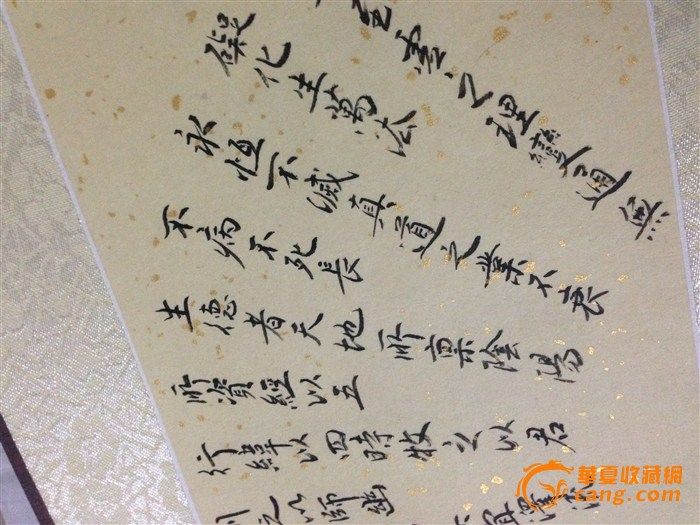 之理變通無
礙化生萬法
永恆不滅真道之業不衰
不病不死長
生德者天地所稟陰陽
所資經以五
行緯以四時牧之以君
之以師幽
華夏收藏網
cang.com